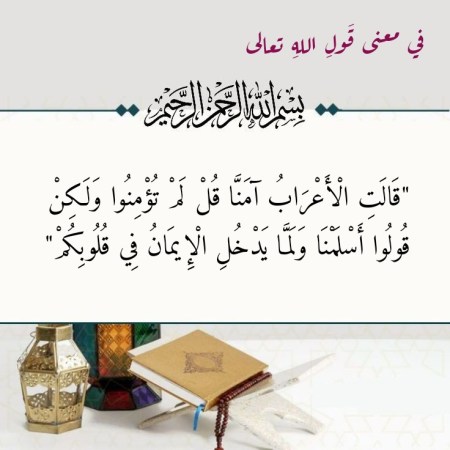 في معنى قَولِ اللهِ تعالى
بِسْمِ اللهِ الرَّحْمنِ الرَّحِيمِ
"قَالَتِ الْأَعْرَابُ آمَنَّا قُلْ لَمْ تُؤْمِنُوا وَلَكِنْ
قُولُوا أَسْلَمْنَا وَلَمَّا يَدْخُلِ الْإِيمَانُ فِي قُلُوبِكُمْ"